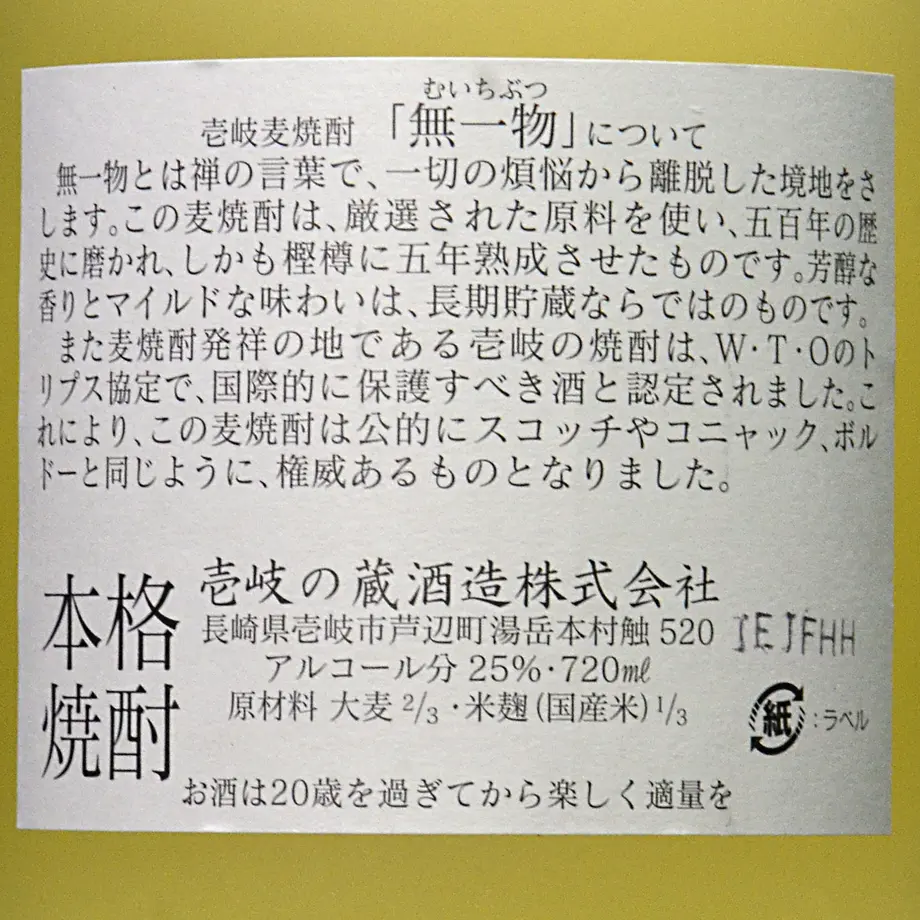 むいちぶつ
壱岐麦焼酎「無一物」について
無一物とは禅の言葉で、一切の煩悩から離脱した境地をさ
します。この麦焼酎は、厳選された原料を使い、五百年の歴
史に磨かれ、しかも樫樽に五年熟成させたものです。芳醇な
香りとマイルドな味わいは、長期貯蔵ならではのものです。
また麦焼酎発祥の地である壱岐の焼酎は、W・T・Oのト
リプス協定で、国際的に保護すべき酒と認定されました。こ
れにより、この麦焼酎は公的にスコッチやコニャック、ボル
ドーと同じように、権威あるものとなりました。
本格
焼酎
壱岐の蔵酒造株式会社
長崎県壱岐市芦辺町湯岳本村触 520
アルコール分 25%・720㎖
原材料 大麦 2/3・米麹(国産米) 1/3
JEJFHH
紙:ラベル
お酒は20歳を過ぎてから楽しく適量を